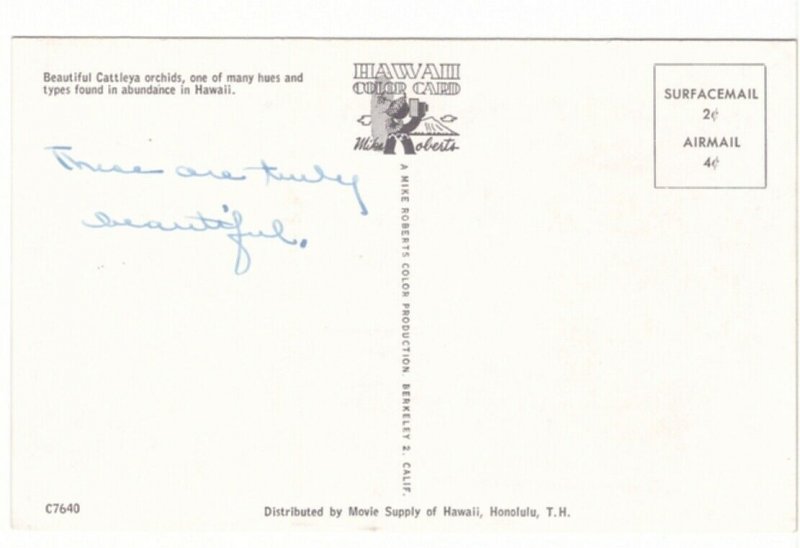 Beautiful Cattleya orchids, one of many hues and
types found in abundance in Hawaii.
HAWAII
COLOR CARD
Mike Roberts
SURFACEMAIL
2¢
AIRMAIL
4¢
These are truly
beautiful.
A MIKE ROBERTS COLOR PRODUCTION. BERKELEY 2. CALIF.
C7640
Distributed by Movie Supply of Hawaii, Honolulu, T.H.